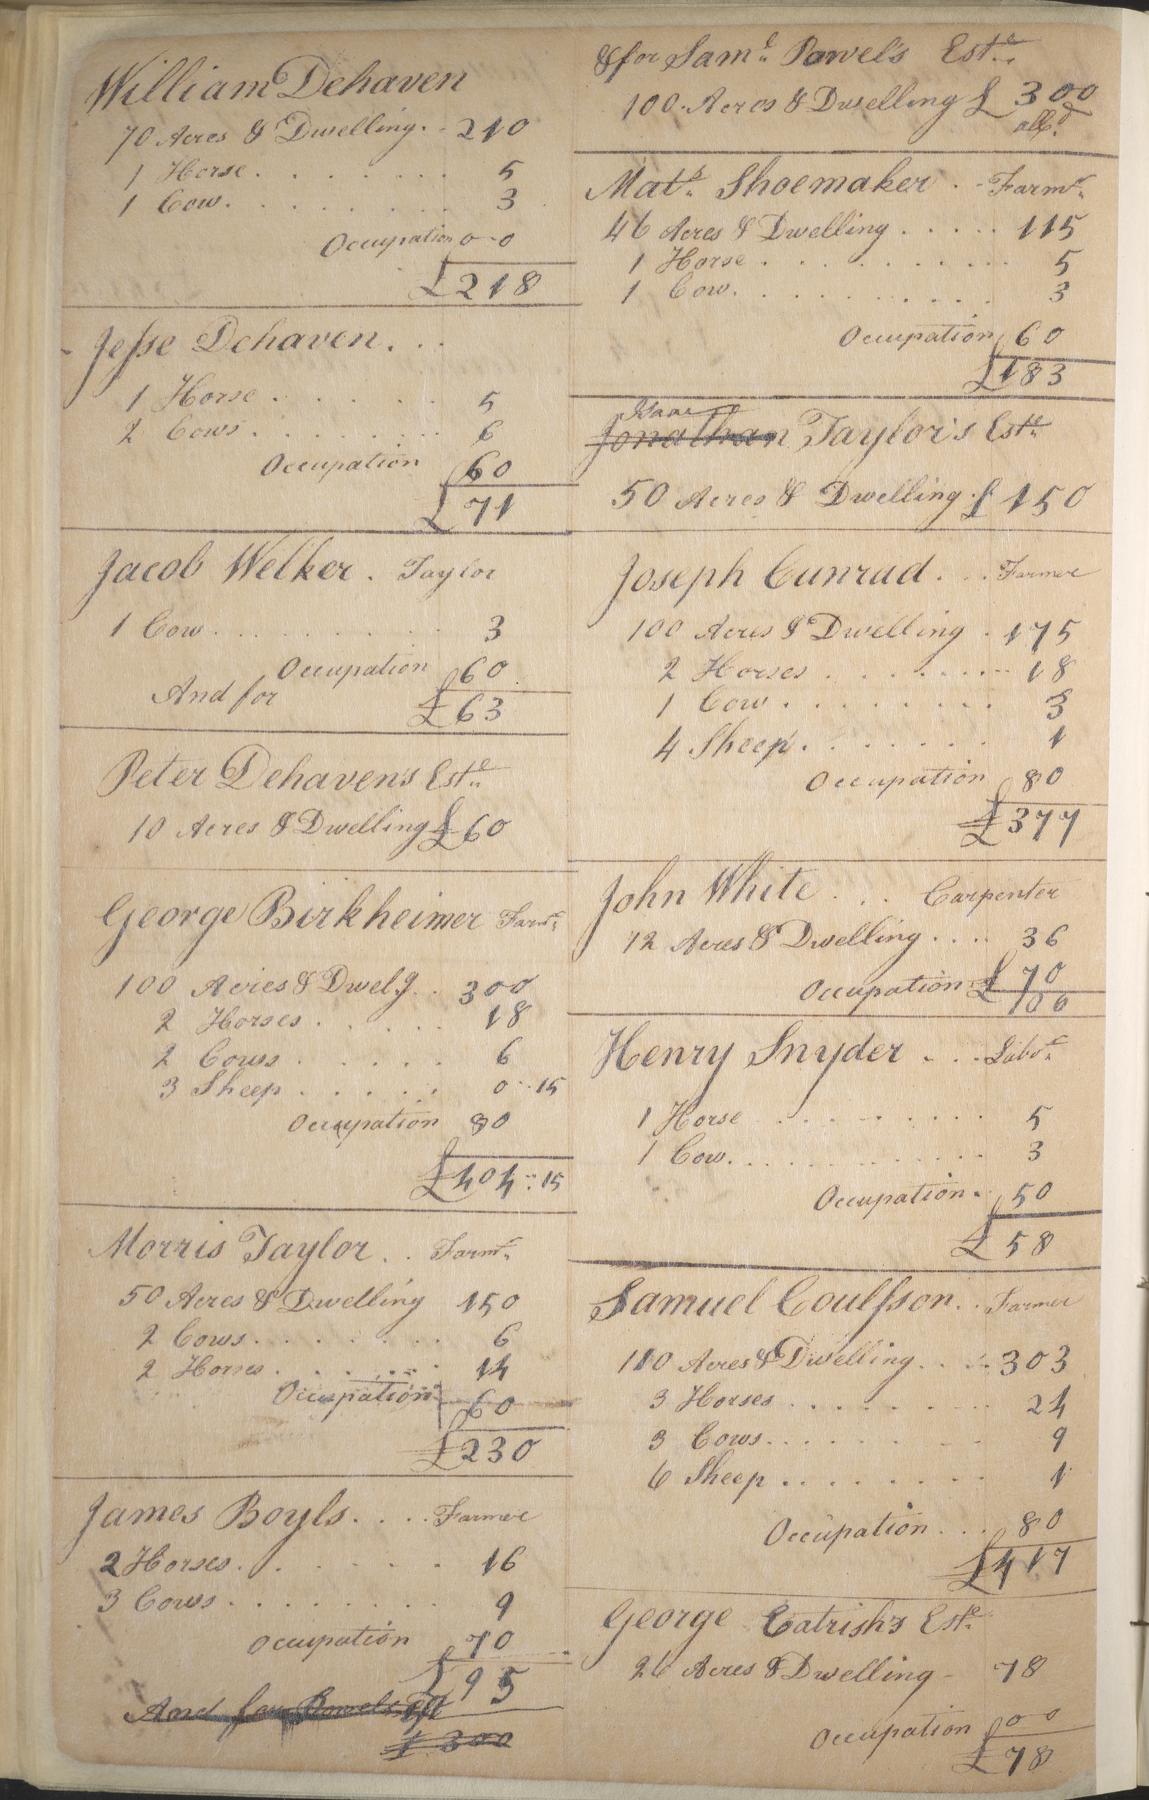 William Dehaven
70 Acres & Dwelling. - 210
1 Horse . . . . . . . 5
1 Cow. . . . . . . . 3
Occupation 0-0
£218
Jesse Dehaven. . .
1 Horse . . . . . . 5
2 Cows . . . . . . . 6
Occupation 60
£71
Jacob Welker. Taylor
1 Cow . . . . . . . . . 3
Occupation 60
And for £63
Peter Dehaven's Este
10 Acres & Dwelling £60
George Birkheimer Farmr
100 Acries & Dwelg. . 300
2 Horses . . . . . 18
2 Cows . . . . . 6
3 Sheep . . . . . 0 .. 15
Occupation 80
£404 : 15
Morris Taylor . . Farmr
50 Acres & Dwelling 150
2 Cows . . . . . . . 6
2 Horses . . . . . . 14
Occupation 60
£230
James Boyls. . . . Farmer
2 Horses . . . . . . 16
3 Cows . . . . . . . . 9
Occupation 70
£95
And for Powels Est
£300
&for Saml Powel's Este
100 Acres & Dwelling £ 300
Mats Shoemaker . . Farmr
46 Acres & Dwelling . . . . . 115
1 Horse . . . . . . . . . . 5
1 Cow. . . . . . . . . . 3
Occupation 60
£183
Isaac
Jonathan Taylor's Este
50 Acres & Dwelling . £ 150
Joseph Cunrad . . . Farmer
100 Acres & Dwelling . 175
2 Horses . . . . . . . . 18
1 Cow . . . . . . . . 3
4 Sheep . . . . . . . 1
Occupation 80
£377
John White . . . Carpenter
12 Acres & Dwelling . . . . 36
Occupation £ 70
£106
Henry Snyder . . . Labor
1 Horse . . . . . . . . . 5
1 Cow. . . . . . . . . . . 3
Occupation . 50
£58
Samuel Coulsson . . Farmer
110 Acres & Dwelling . . . 303
3 Horses . . . . . . . . 24
3 Cows . . . . . . . . 9
6 Sheep . . . . . . . 1
Occupation . . . 80
£417
George Catrish's Este
26 Acres & Dwelling - 78
Occupation 00
£78